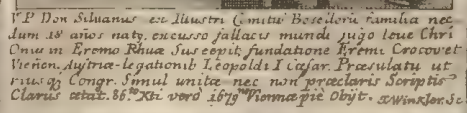 V P Don Siluanus ex Illustri Comitũ Boselloru familia nec
dum 18 años natq, excusso fallacis mundi jugo leue Chri
Onus in Eremo Rhuæ Suscepit, fundatione Eremi Crocov et
Vieñen. Austriæ-legationib Leopoldi I Cæsar. Præsulatu ut
riusqȝ Congr. Simul unitæ nec non præclaris Scriptis
Clarus ætat. 86.to Xti verò 1679 no Viennæ piè Obijt. Winkler. Sc.